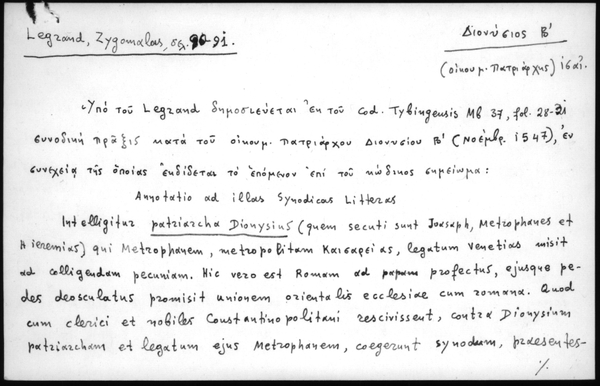 Legrand, Zygomalas, σελ. 90-91.
Διονύσιος Β'
(οἰκουμ. Πατριάρχης) ις αἰ.
Ὑπὸ τοῦ Legrand δημοσιεύεται ἐκ τοῦ Cod. Tybingensis Mb 37, fol. 28-31
συνοδικὴ πρᾶξις κατὰ τοῦ οἰκουμ. Πατριάρχου Διονυσίου Β' (Νοέμβρ. 1547), ἐν
συνεχείᾳ τῆς ὁποίας ἐκδίδεται τὸ ἑπόμενον ἐπὶ τοῦ κώδικος σημείωμα:
Annotatio ad illas Synodicas Litteras
Intelligitur patriarcha Dionysius (quem secuti sunt Joasaph, Metrophanes et
Hieremias) qui Metrophanem, metropolitam Καισαρείας, legatum Venetias misit
ad colligendam pecuniam. Hic vero est Romam profectus, ejusque pe-
des deosculatus promisit unionem orientalis ecclesiae cum romana. Quod
cum clerici et nobiles Constantinopolitani rescivissent, contra Dionysium
patriarcham et legatum ejus Metrophanem, coegerunt synodum, praesentes-
./.